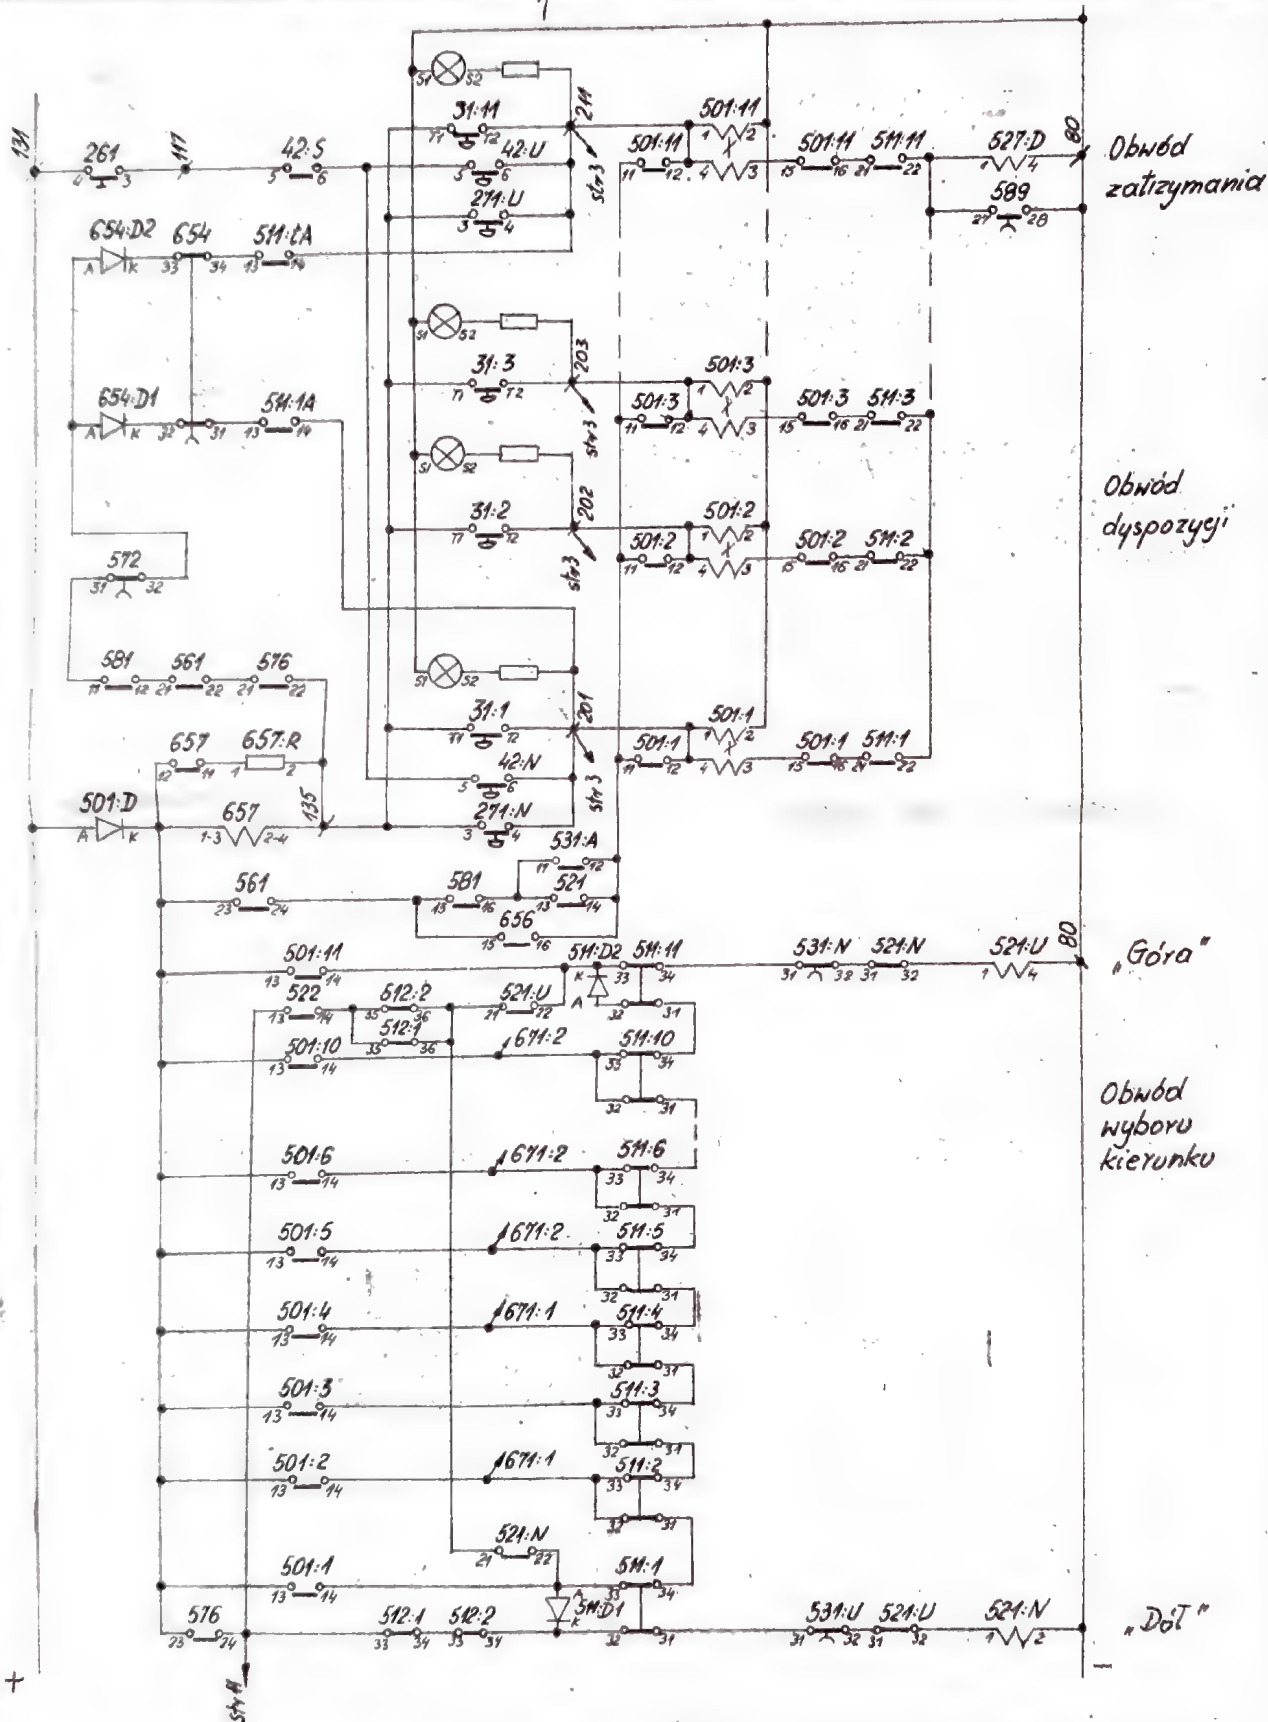 131
261
4 3
117
42:S
5 6
S1 S2
31:11
T1 T2
211
str 3
42:U
5 6
271:U
3 4
501:11
1 2
501:11
11 12
4 3
501:11
15 16
511:11
21 22
627:D
1 4
80
589
27 28
Obwód
zatrzymania
654:D2
A K
654
33 34
511:LA
13 14
S1 S2
31:3
T1 T2
203
str 3
501:3
1 2
501:3
11 12
4 3
501:3
15 16
511:3
21 22
654:D1
A K
32 31
511:1A
13 14
S1 S2
31:2
T1 T2
202
str 3
501:2
1 2
501:2
11 12
4 3
501:2
15 16
511:2
21 22
Obwód
dyspozycji
572
31 32
581
11 12
561
21 22
576
21 22
S1 S2
31:1
T1 T2
201
str 3
501:1
1 2
501:1
11 12
4 3
501:1
15 16
511:1
21 22
657
12 11
657:R
1 2
42:N
5 6
501:D
A K
657
1-3 2-4
135
271:N
3 4
531:A
11 12
561
23 24
581
15 16
521
13 14
656
15 16
501:11
13 14
511:D2
K
A
511:11
33 34
32 31
531:N
31 32
521:N
31 32
521:U
1 4
80
„Góra"
522
13 14
512:2
35 36
512:1
35 36
521:U
21 22
501:10
13 14
671:2
511:10
33 34
32 31
Obwód
wyboru
kierunku
501:6
13 14
671:2
511:6
33 34
32 31
501:5
13 14
671:2
511:5
33 34
32 31
501:4
13 14
671:1
511:4
33 34
32 31
501:3
13 14
511:3
33 34
32 31
501:2
13 14
671:1
511:2
33 34
32 31
521:N
21 22
501:1
13 14
511:1
33 34
A
511:D1
K
32 31
576
23 24
512:1
33 34
512:2
33 34
531:U
31 32
521:U
31 32
521:N
1 2
„Dół"
+
−
str 11